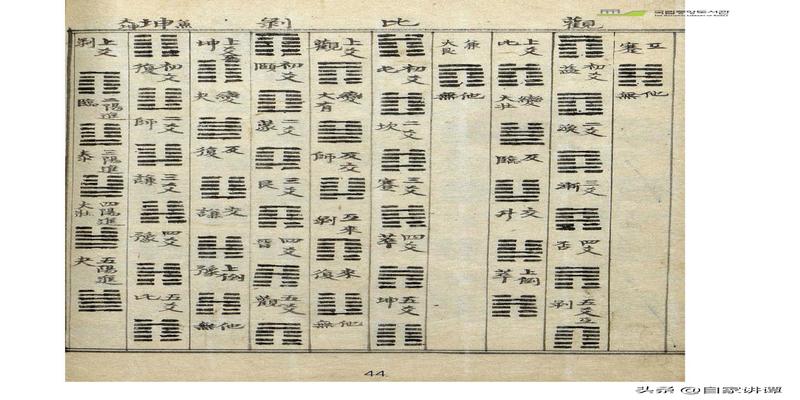 국립중앙도서관
觀
互 蹇
他無
初爻 益
二爻 渙
三爻 漸
四爻 否
五爻 剝
上爻 比
變 大壯
反 臨
交 升
上倒 萃
兼 大艮
他無
比
初爻 屯
二爻 坎
三爻 蹇
四爻 萃
五爻 坤
上爻 觀
變 大有
反交 師
互來 剝
來 復
他無
剝
初爻 頤
二爻 蒙
三爻 艮
四爻 晉
五爻 觀
上爻 坤
變 夬
反 復
交 謙
上倒 豫
他無
坤
初爻 復
二爻 師
三爻 謙
四爻 豫
五爻 比
上爻 剝
二陽進 臨
三陽進 泰
四陽進 大壯
五陽進 夬
44
头条 @自家讲谭